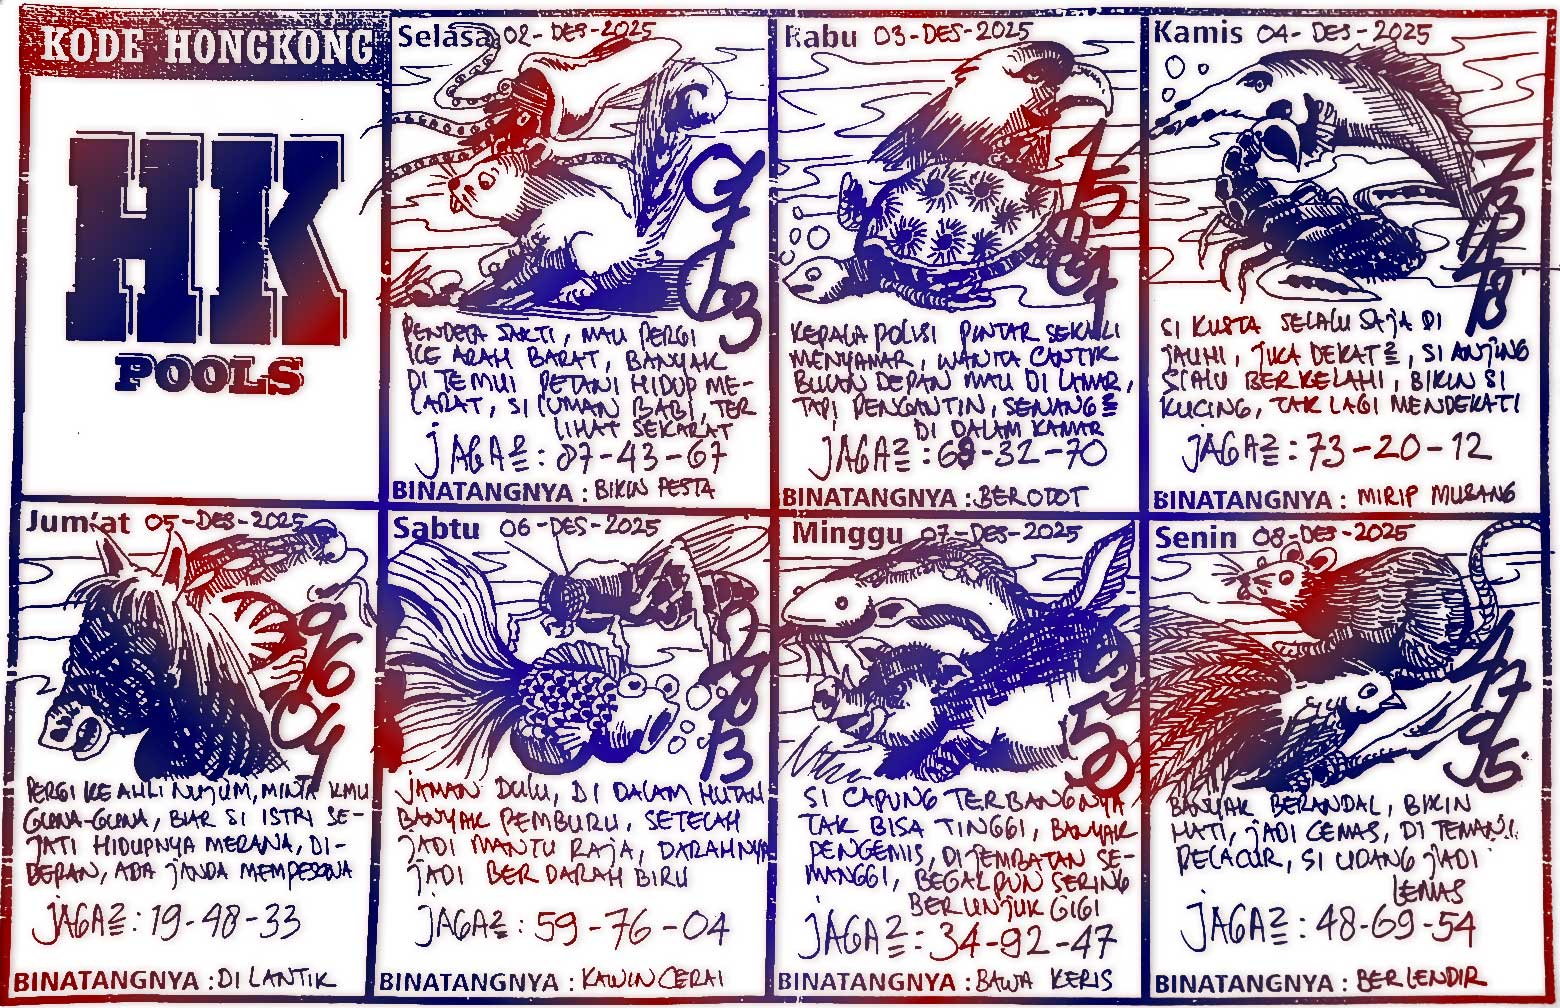 KODE HONGKONG
HK
POOLS
Selasa 02-DES-2025
PENDETA SAKTI, MAU PERGI
KE ARAH BARAT, BANYAK
DI TEMUI PETANI HIDUP ME-
LARAT, SILUMAN BABI, TER
LIHAT SEKARAT
JAGA2 : 87-43-67
BINATANGNYA : BIKIN PESTA
Rabu 03-DES-2025
KEPALA POLISI PINTAR SEKALI
MENYAMAR, WANITA CANTIK
BULAN DEPAN MAU DI LAMAR,
TAPI PENGANTIN, SENANG2
DI DALAM KAMAR
JAGA2 : 69-32-70
BINATANGNYA : BERODOT
Kamis 04-DES-2025
73
48
SI KUSTA SELALU SAJA DI
JAUHI, JUKA DEKAT2, SI ANJING
SLALU BERKELAHI, BIKIN SI
KUCING, TAK LAGI MENDEKATI
JAGA2 : 73-20-12
BINATANGNYA : MIRIP MUSANG
Jum'at 05-DES-2025
96
04
PERGI KE AHLI NUJUM, MINTA ILMU
GUNA-GUNA, BIAR SI ISTRI SE-
JATI HIDUPNYA MERANA, DI-
DEPAN, ADA JANDA MEMPESONA
JAGA2 : 19-48-33
BINATANGNYA : DI LANTIK
Sabtu 06-DES-2025
28
13
JAMAN DULU, DI DALAM HUTAN
BANYAK PEMBURU, SETELAH
JADI MANTU RAJA, DARAHNYA
JADI BERDARAH BIRU
JAGA2 : 59-76-04
BINATANGNYA : KAWIN CERAI
Minggu 07-DES-2025
63
50
SI CAPUNG TERBANGNYA
TAK BISA TINGGI, BANYAK
PENGEMIS, DI JEMBATAN SE-
MANGGI, BEGAL PUN SERING
BERUNJUK GIGI
JAGA2 : 34-92-47
BINATANGNYA : BAWA KERIS
Senin 08-DES-2025
47
95
BANYAK BERANDAL, BIKIN
HATI, JADI CEMAS, DI TEMANI
PELACUR, SI UDANG JADI
LEMAS
JAGA2 : 48-69-54
BINATANGNYA : BERLENDIR